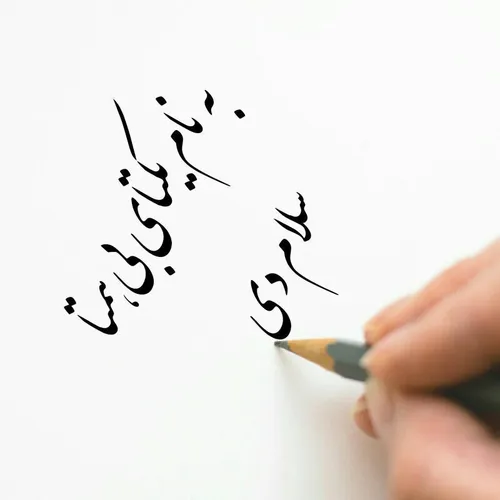 به نام یکتای بی همتا
سلام دی